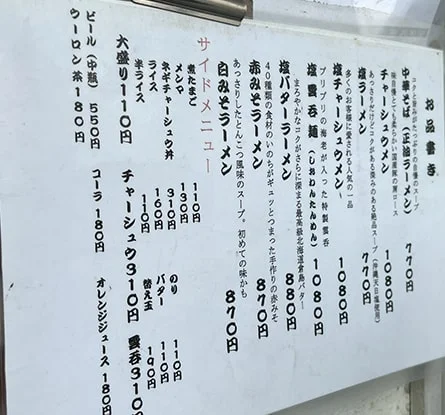 お品書き
中華そば(正油ラーメン) 770円
コクと旨みがたっぷりの自慢のスープ
チャーシュウメン 1080円
味自慢とても柔らかい国産豚の肩ロース
塩ラーメン 770円
あっさりだけどコクがある深みのある絶品スープ(沖縄天日塩使用)
塩チャーシュウメン 1080円
多くのお客様に愛される人気の一品
塩雲呑麺(しおわんたんめん) 1080円
プリプリの海老が入った特製雲呑
塩バターラーメン 880円
まろやかなコクがさらに深まる最高級北海道倉島バター
赤みそラーメン 870円
40種類の食材のいのちがギュッとつまった手作りの赤みそ
白みそラーメン 870円
あっさりしたとんこつ風味のスープ。初めての味かも
サイドメニュー
煮たまご 110円
メンマ 130円
ネギチャーシュウ丼 310円
ライス 160円
半ライス 110円
のり 110円
バター 110円
替え玉 190円
大盛り110円 チャーシュウ310円 雲呑310円
ビール(中瓶) 550円 コーラ 180円 オレンジジュース 180円
ウーロン茶 180円